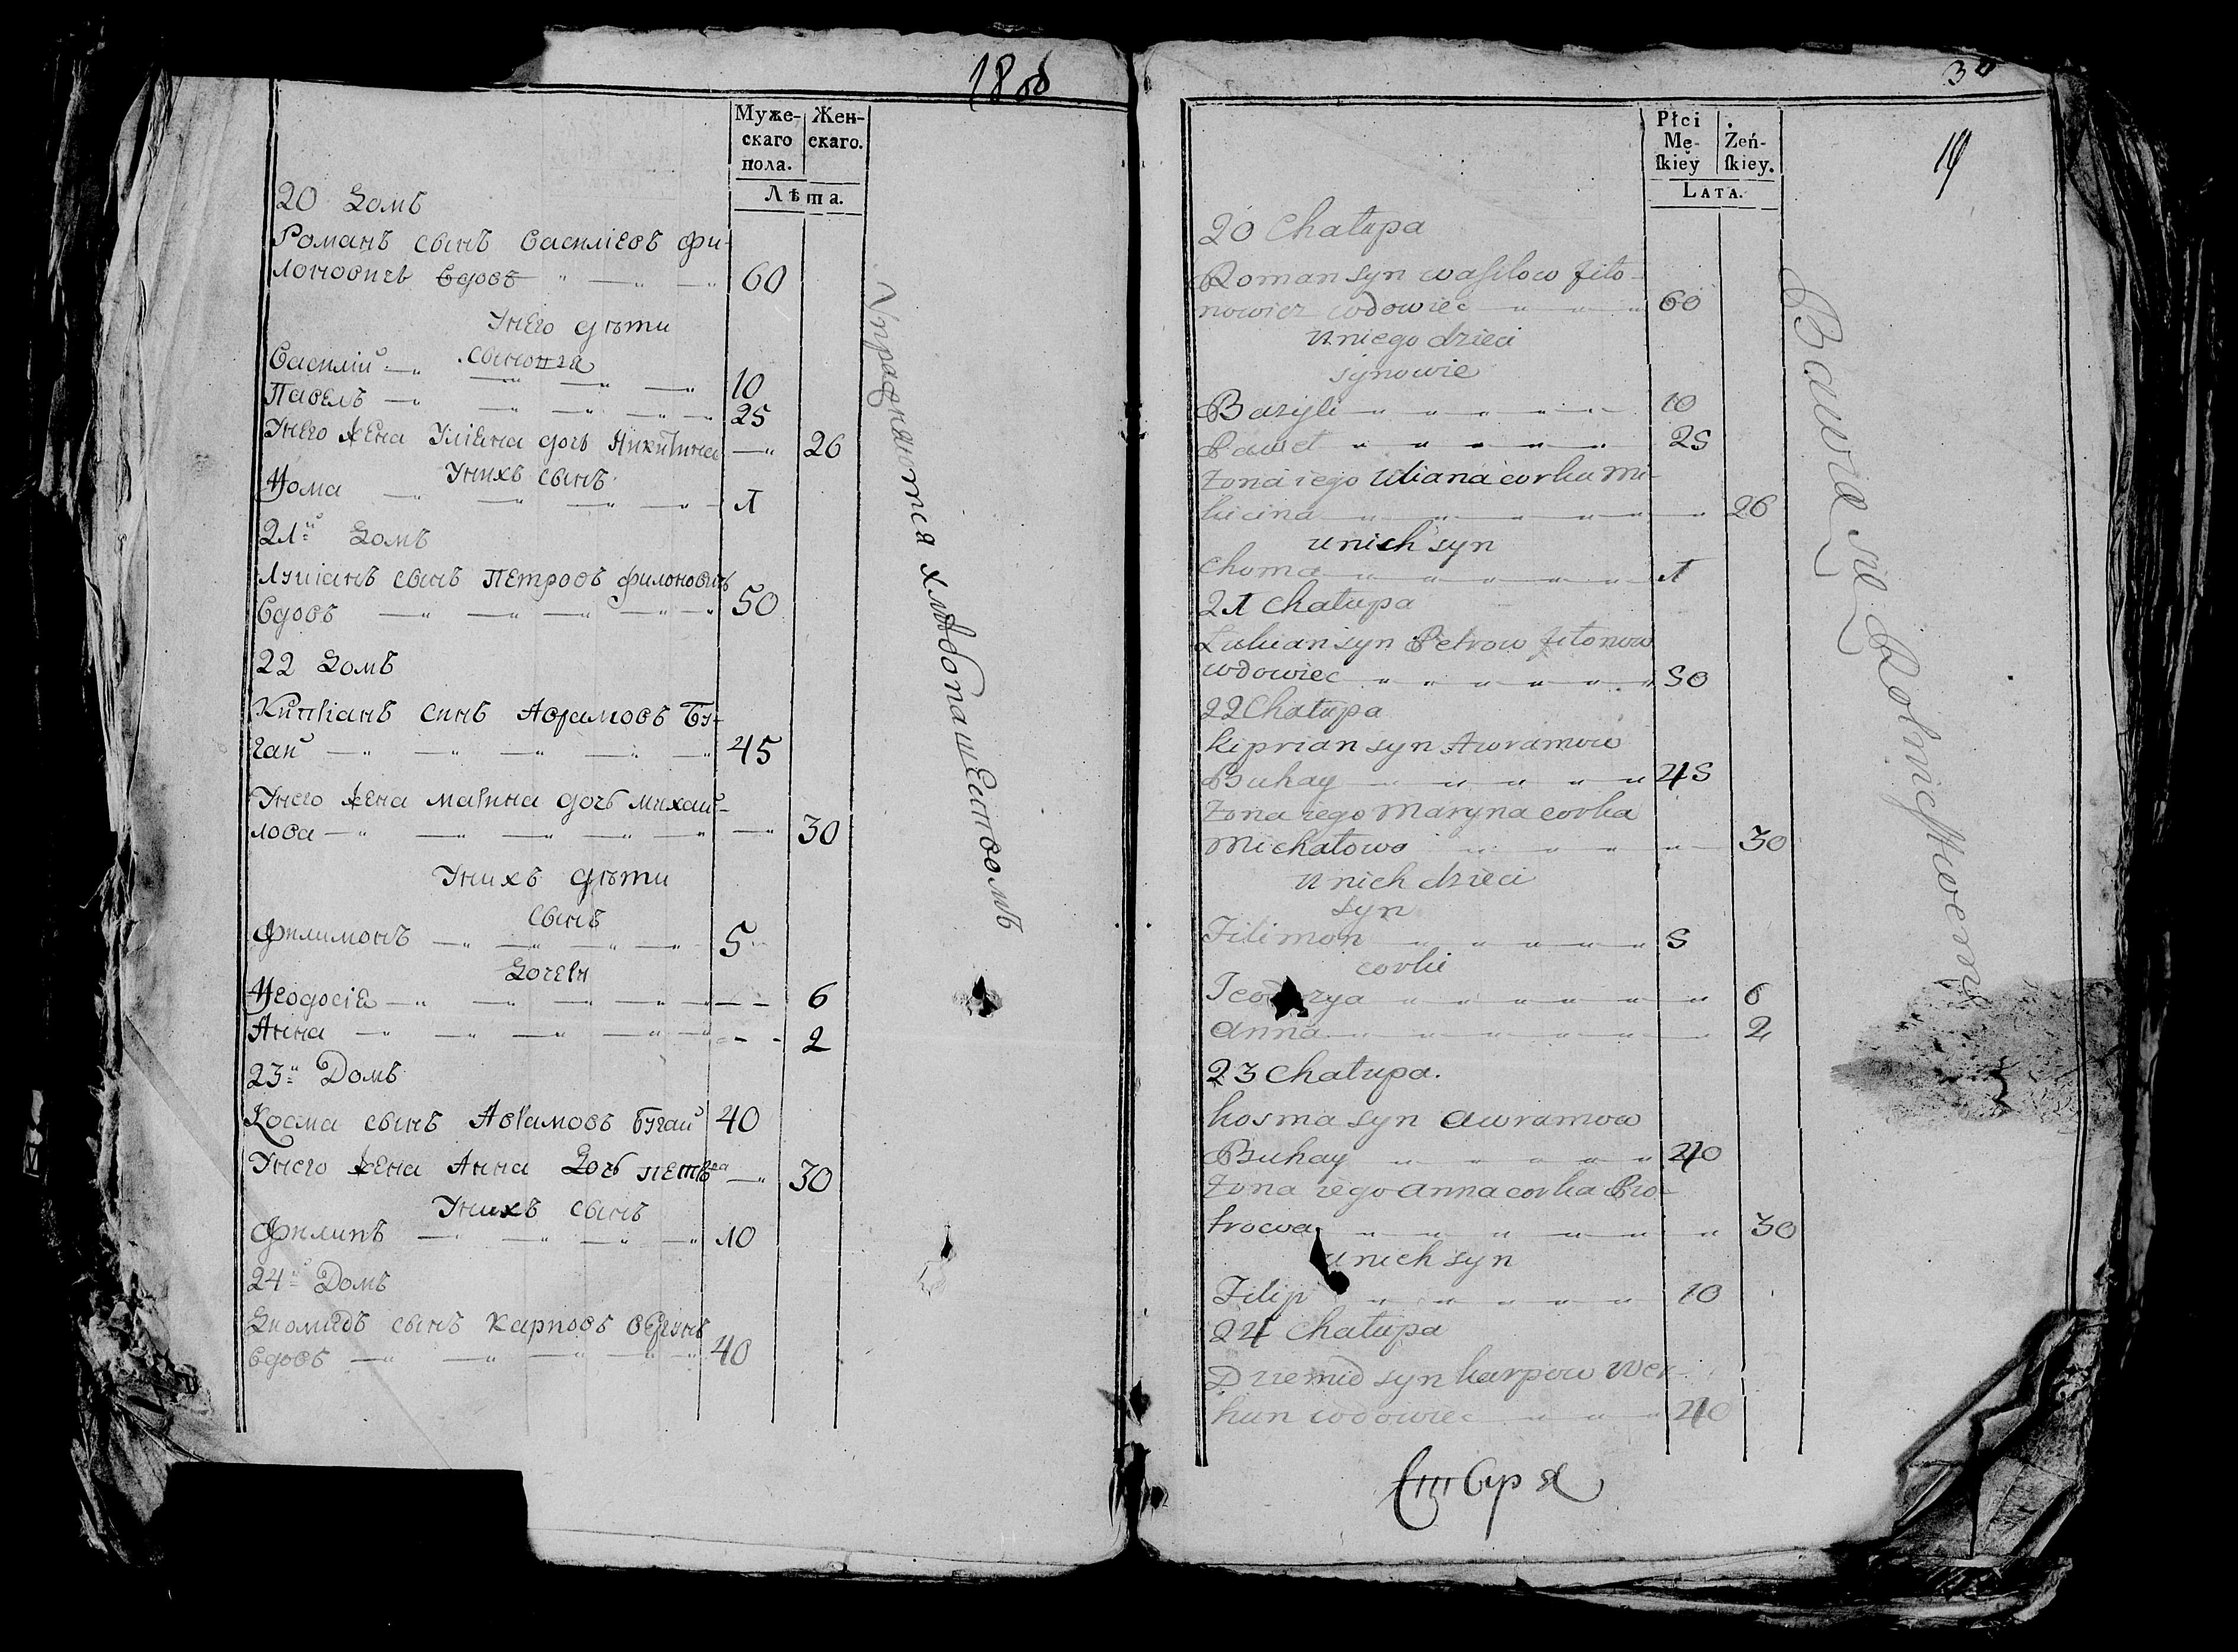 1800
Муже-
скаго
пола.
Жен-
скаго.
Лѣта.
20 Домъ
Романъ сынъ Василіевъ Фи-
лоновичъ вдовъ 60
Унего дѣти
Сыновья
Василій 10
Павелъ 25
Унего жена Уліяна дочь Никитина 26
Унихъ сынъ
Ѳома 1
21й Домъ
Лукіанъ сынъ Петровъ Филоновичъ
вдовъ 50
22 Домъ
Кипріанъ синъ Аврамовъ Бу-
гай 45
Унего жена Марина дочь Михай-
лова 30
Унихъ дѣти
Сынъ
Филимонъ 5
Дочери
Ѳеодосія 6
Анна 2
23й Домъ
Косма сынъ Аврамовъ Бугай 40
Унего жена Анна дочь Петрова 30
Унихъ сынъ
Филипъ 10
24й Домъ
Диомидъ сынъ Карповъ Вергунъ
вдовъ 40
Упражняются хлѣбопашествомъ
30
19
Płci
Mę-
ſkiey
Żeń-
ſkiey.
LATA.
20 Chałupa
Roman syn Wasilow Fiło-
nowicz wdowiec 60
u niego dzieci
synowie
Bazyli 10
Paweł 25
Żona iego Uliana corka Mi-
kicina 26
u nich syn
Choma 1
21 Chałupa
Łukian syn Petrow Fiłonow
wdowiec 50
22 Chałupa
Kiprian syn Awramow
Buhay 45
Żona iego Maryna corka
Michałowa 30
u nich dzieci
syn
Filimon 5
corki
Teodozya 6
Anna 2
23 Chałupa.
Kosma syn Awramow
Buhay 40
Żona iego Anna corka Pio-
trowa 30
u nich syn
Filip 10
24 Chałupa
Dziemid syn Karpow Wer-
hun wdowiec 40
Bawią się Rolnictwem